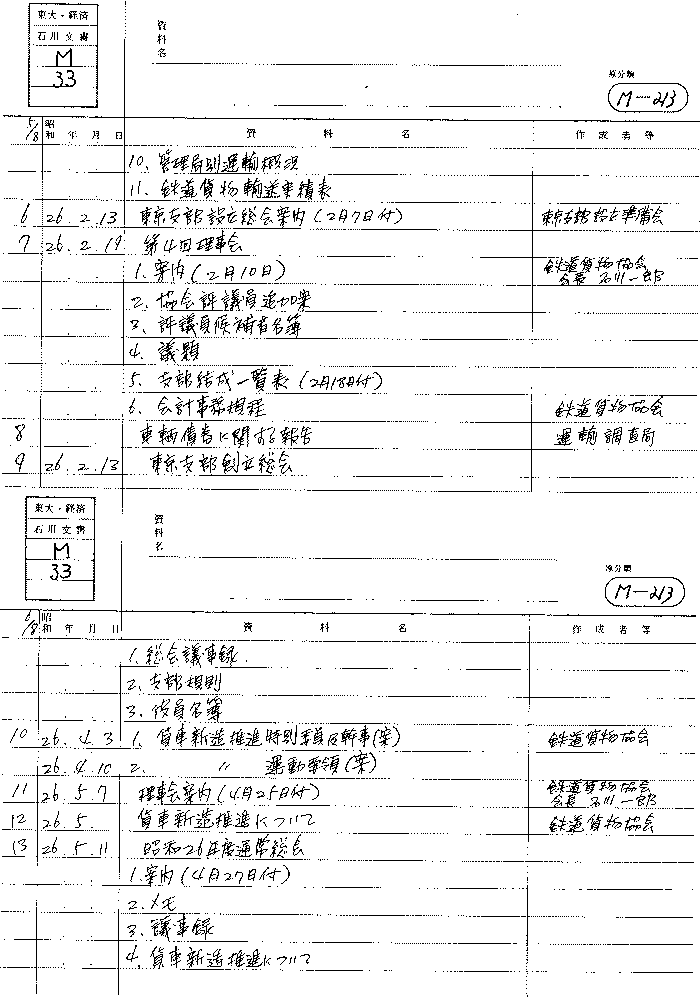 東大・経済
石川文書
M
33
資料名
原分類
M-213
5/8 昭和 年 月 日 資料名 作成者等
10. 管理局別運輸概況
11. 鉄道貨物輸送実績表
6 26. 2. 13 東京支部設立総会案内(2月7日付) 東京支部設立準備会
7 26. 2. 19 第4回理事会
1. 案内(2月10日) 鉄道貨物協会 会長 石川一郎
2. 協会評議員追加案
3. 評議員候補者名簿
4. 議題
5. 支部結成一覧表(2月18日付)
6. 会計事務規程 鉄道貨物協会
8 車輌債券に関する報告 運輸調査局
9 26. 2. 13 東京支部創立総会
東大・経済
石川文書
M
33
資料名
原分類
M-213
6/8 昭和 年 月 日 資料名 作成者等
1. 総会議事録
2. 支部規則
3. 役員名簿
10 26. 4. 3 1. 貨車新造推進特別委員及幹事(案) 鉄道貨物協会
26. 4. 10 2. 〃 運動要領(案)
11 26. 5. 7 理事会案内(4月25日付) 鉄道貨物協会 会長 石川一郎
12 26. 5 貨車新造推進について 鉄道貨物協会
13 26. 5. 11 昭和26年度通常総会
1. 案内(4月27日付)
2. メモ
3. 議事録
4. 貨車新造推進について